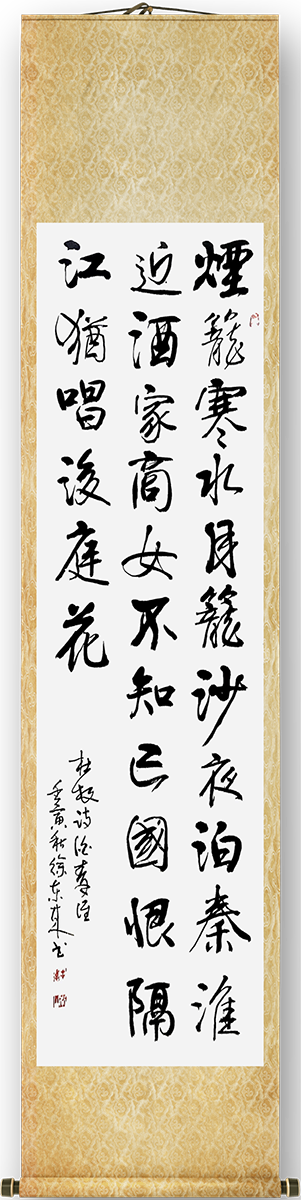 煙籠寒水月籠沙夜泊秦淮
近酒家商女不知亡國恨隔
江猶唱後庭花
杜牧诗泊秦淮
壬寅秋徐东书